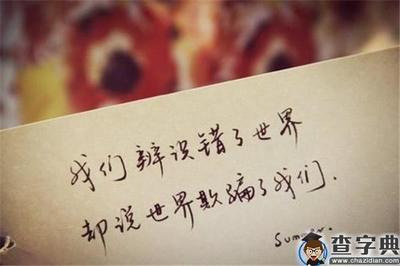 我们辨识错了世界
却说世界欺骗了我们.
查字典
www.chazidian.com